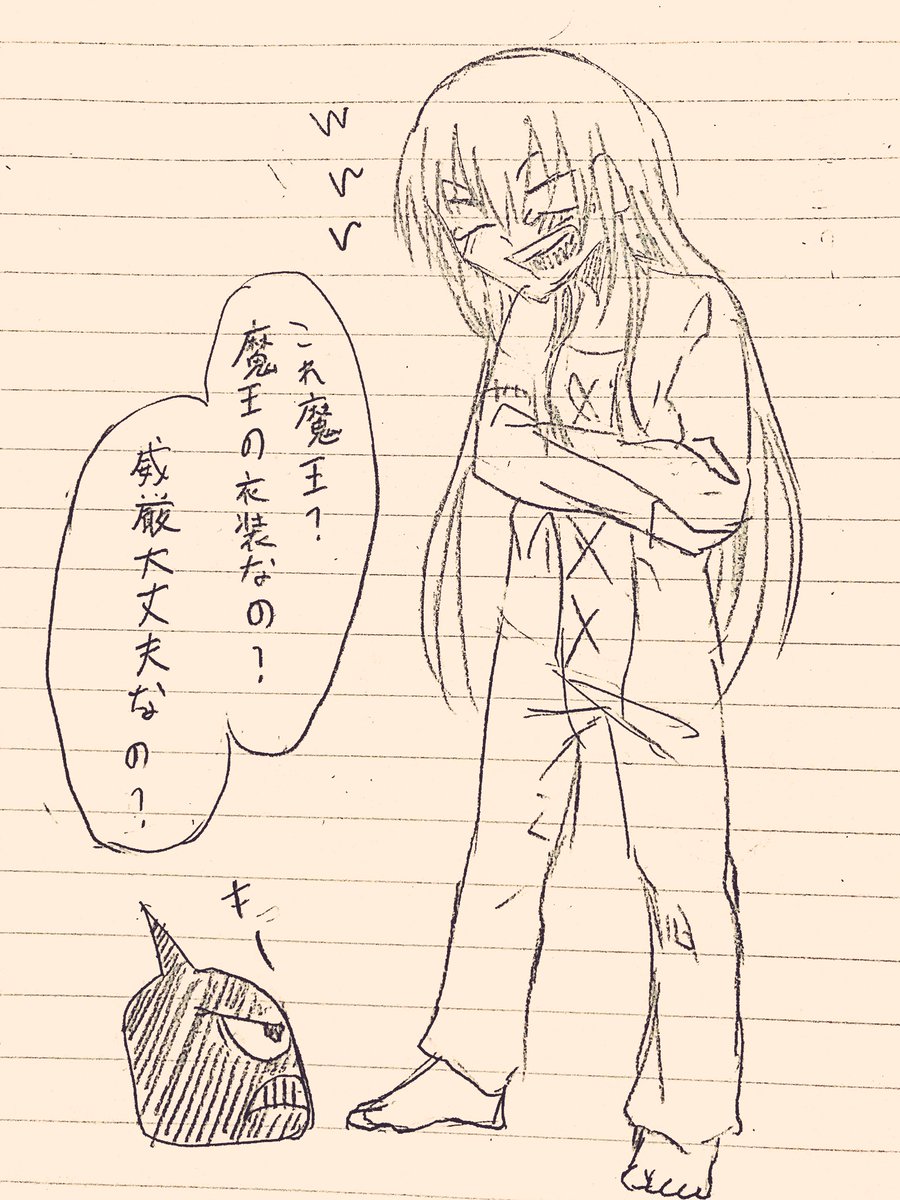 www
これ魔王?
魔王の衣装なの?
威厳大丈夫なの?
キッ